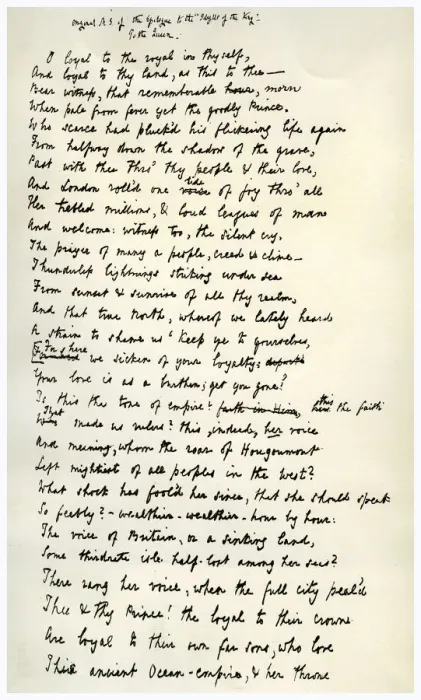 Original M.S. of the Epilogue to the "Idylls of the King".
To the Queen.
O loyal to the royal in thyself,
And loyal to thy land, as this to thee—
Bear witness, that rememberable hour, morn
When pale from fever yet the goodly Prince.
Who scarce had pluck'd his flickering life again
From halfway down the shadow of the grave,
Past with thee thro' thy people & their love,
And London roll'd one tide
of joy thro' all
Her trebled millions, & loud leagues of man
And welcome: witness too, the silent cry,
The prayer of many a people, creed & clime—
Thunderless lightnings striking under sea
From sunset & sunrise of all thy realm,
And that true North, whereof we lately heard
A strain to shame us 'Keep ye to yourselves,
we sicken of your loyalty:
Your love is as a burthen; get you gone!'
Is this the tone of empire? faith in Him, this here the faith
That made us rulers? this, indeed, her voice
And meaning, whom the roar of Hougoumont
Left mightiest of all peoples in the west?
What shock has fool'd her since, that she should speak
So feebly? - wealthier - wealthier - hour by hour:
The voice of Britain, or a sinking land,
Some thirdrate isle half-lost among her seas?
There rang her voice, when the full city peal'd
Thee & thy Prince! the loyal to their crown
Are loyal to their own far sons, who love
This ancient Ocean-empire, & her throne